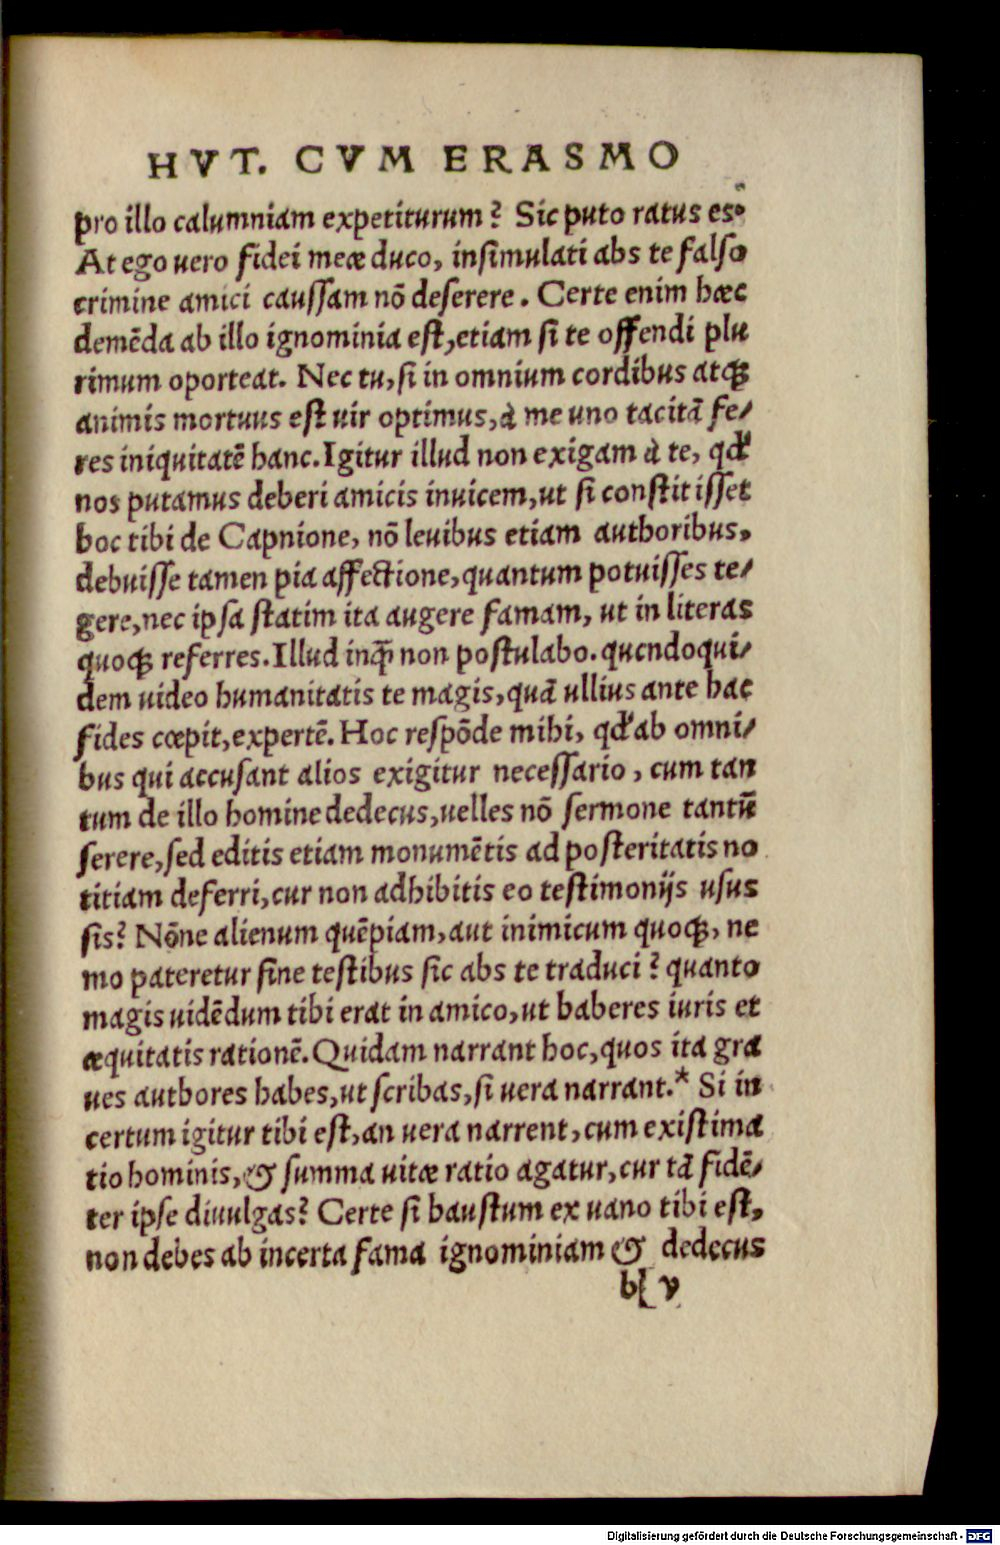 HVT. CVM ERASMO
pro illo calumniam expetiturum? Sic puto ratus es.
At ego uero fidei meæ duco, insimulati abs te falso
crimine amici caussam nō deserere. Certe enim hæc
demēda ab illo ignominia est, etiam si te offendi plu
rimum oporteat. Nec tu, si in omnium cordibus atqꝫ
animis mortuus est uir optimus, à me uno tacitā fe/
res iniquitatē hanc. Igitur illud non exigam à te, qđ
nos putamus deberi amicis inuicem, ut si constitisset
hoc tibi de Capnione, nō leuibus etiam authoribus,
debuisse tamen pia affectione, quantum potuisses te/
gere, nec ipsa statim ita augere famam, ut in literas
quoqꝫ referres. Illud inqȝ̄ non postulabo. quendoqui/
dem uideo humanitatis te magis, quā ullius ante hac
fides cœpit, expertē. Hoc respōde mihi, qđ ab omni/
bus qui accusant alios exigitur necessario, cum tan
tum de illo homine dedecus, uelles nō sermone tantū
serere, sed editis etiam monumētis ad posteritatis no
titiam deferri, cur non adhibitis eo testimonijs usus
sis? Nōne alienum quēpiam, aut inimicum quoqꝫ, ne
mo pateretur sine testibus sic abs te traduci? quanto
magis uidēdum tibi erat in amico, ut haberes iuris et
æquitatis rationē. Quidam narrant hoc, quos ita gra
ues authores habes, ut scribas, si uera narrant.* Si in
certum igitur tibi est, an uera narrent, cum existima
tio hominis, & summa uitæ ratio agatur, cur tā fidē/
ter ipse diuulgas? Certe si haustum ex uano tibi est,
non debes ab incerta fama ignominiam & dedecus
b[v
Digitalisierung gefördert durch die Deutsche Forschungsgemeinschaft - DFG